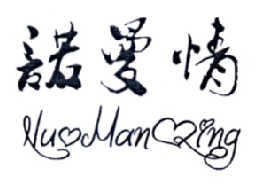 諾曼情
NuoManQing